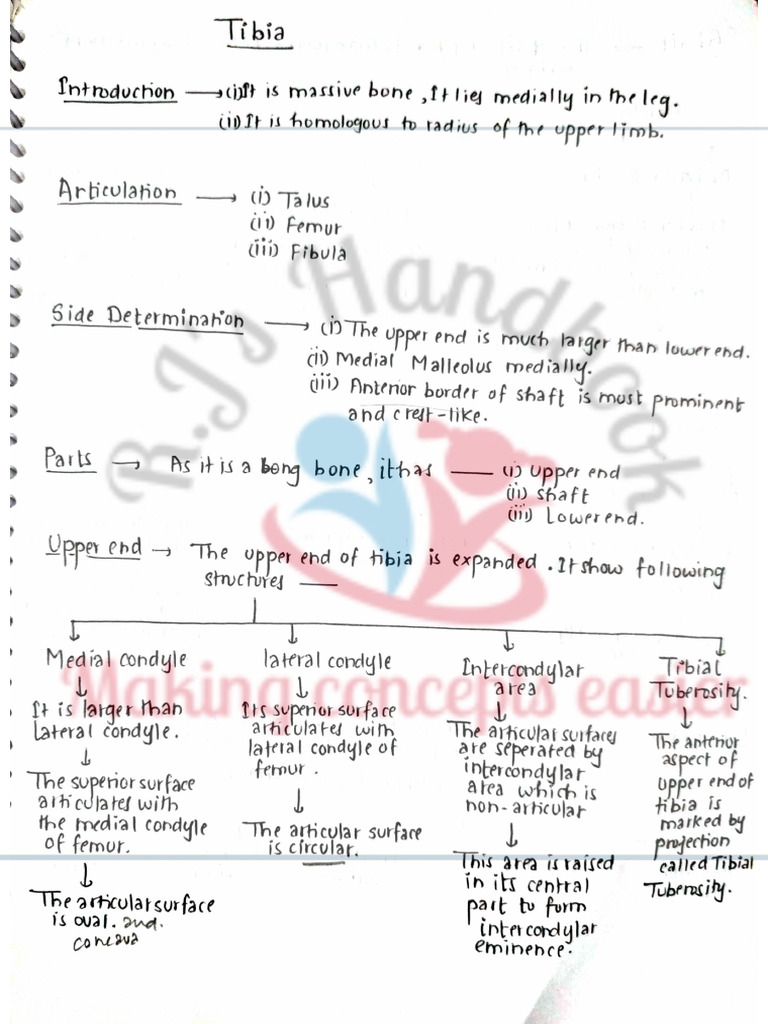 Tibia
Introduction → (i) It is massive bone, It lies medially in the leg.
(ii) It is homologous to radius of the upper limb.
Articulation → (i) Talus
(ii) Femur
(iii) Fibula
Side Determination → (i) The upper end is much larger than lower end.
(ii) Medial Malleolus medially.
(iii) Anterior border of shaft is most prominent
and crest-like.
Parts → As it is a long bone, it has — (i) Upper end
(ii) shaft
(iii) Lower end.
Upper end → The upper end of tibia is expanded. It show following
structures —
Medial condyle
↓
It is larger than
Lateral condyle.
↓
The superior surface
articulates with
the medial condyle
of femur.
↓
The articular surface
is oval. and.
concava
lateral condyle
↓
Its superior surface
articulates with
lateral condyle of
femur.
↓
The articular surface
is circular.
Intercondylar
area
↓
The articular surfaces
are seperated by
intercondylar
area which is
non-articular
↓
This area is raised
in its central
part to form
intercondylar
eminence.
Tibial
Tuberosity.
↓
The anterior
aspect of
upper end of
tibia is
marked by
projection
called Tibial
Tuberosity.
R.J's Handbook
Making concepts easier